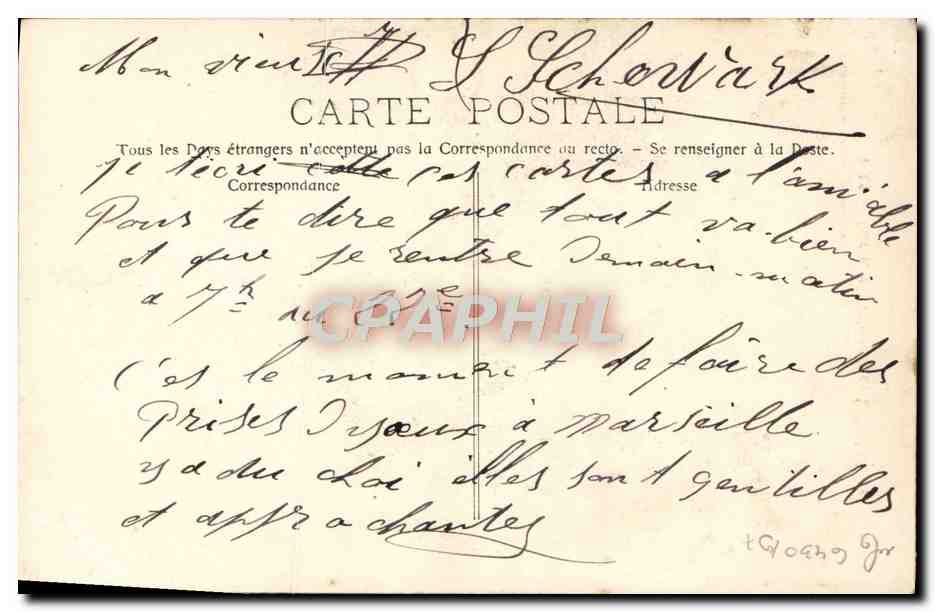 Mon vieux L Schowark
CARTE POSTALE
Tous les Pays étrangers n'acceptent pas la Correspondance au recto. - Se renseigner à la Poste.
je técri cette ces cartes a l'amiable
Correspondance Adresse
Pour te dire que tout va bien
et que je rentre Demain matin
a 7h au
CPAPHIL
c'es le moment de faire des
Prises à Marseille
y a du choi elles sont gentilles
et approchantes